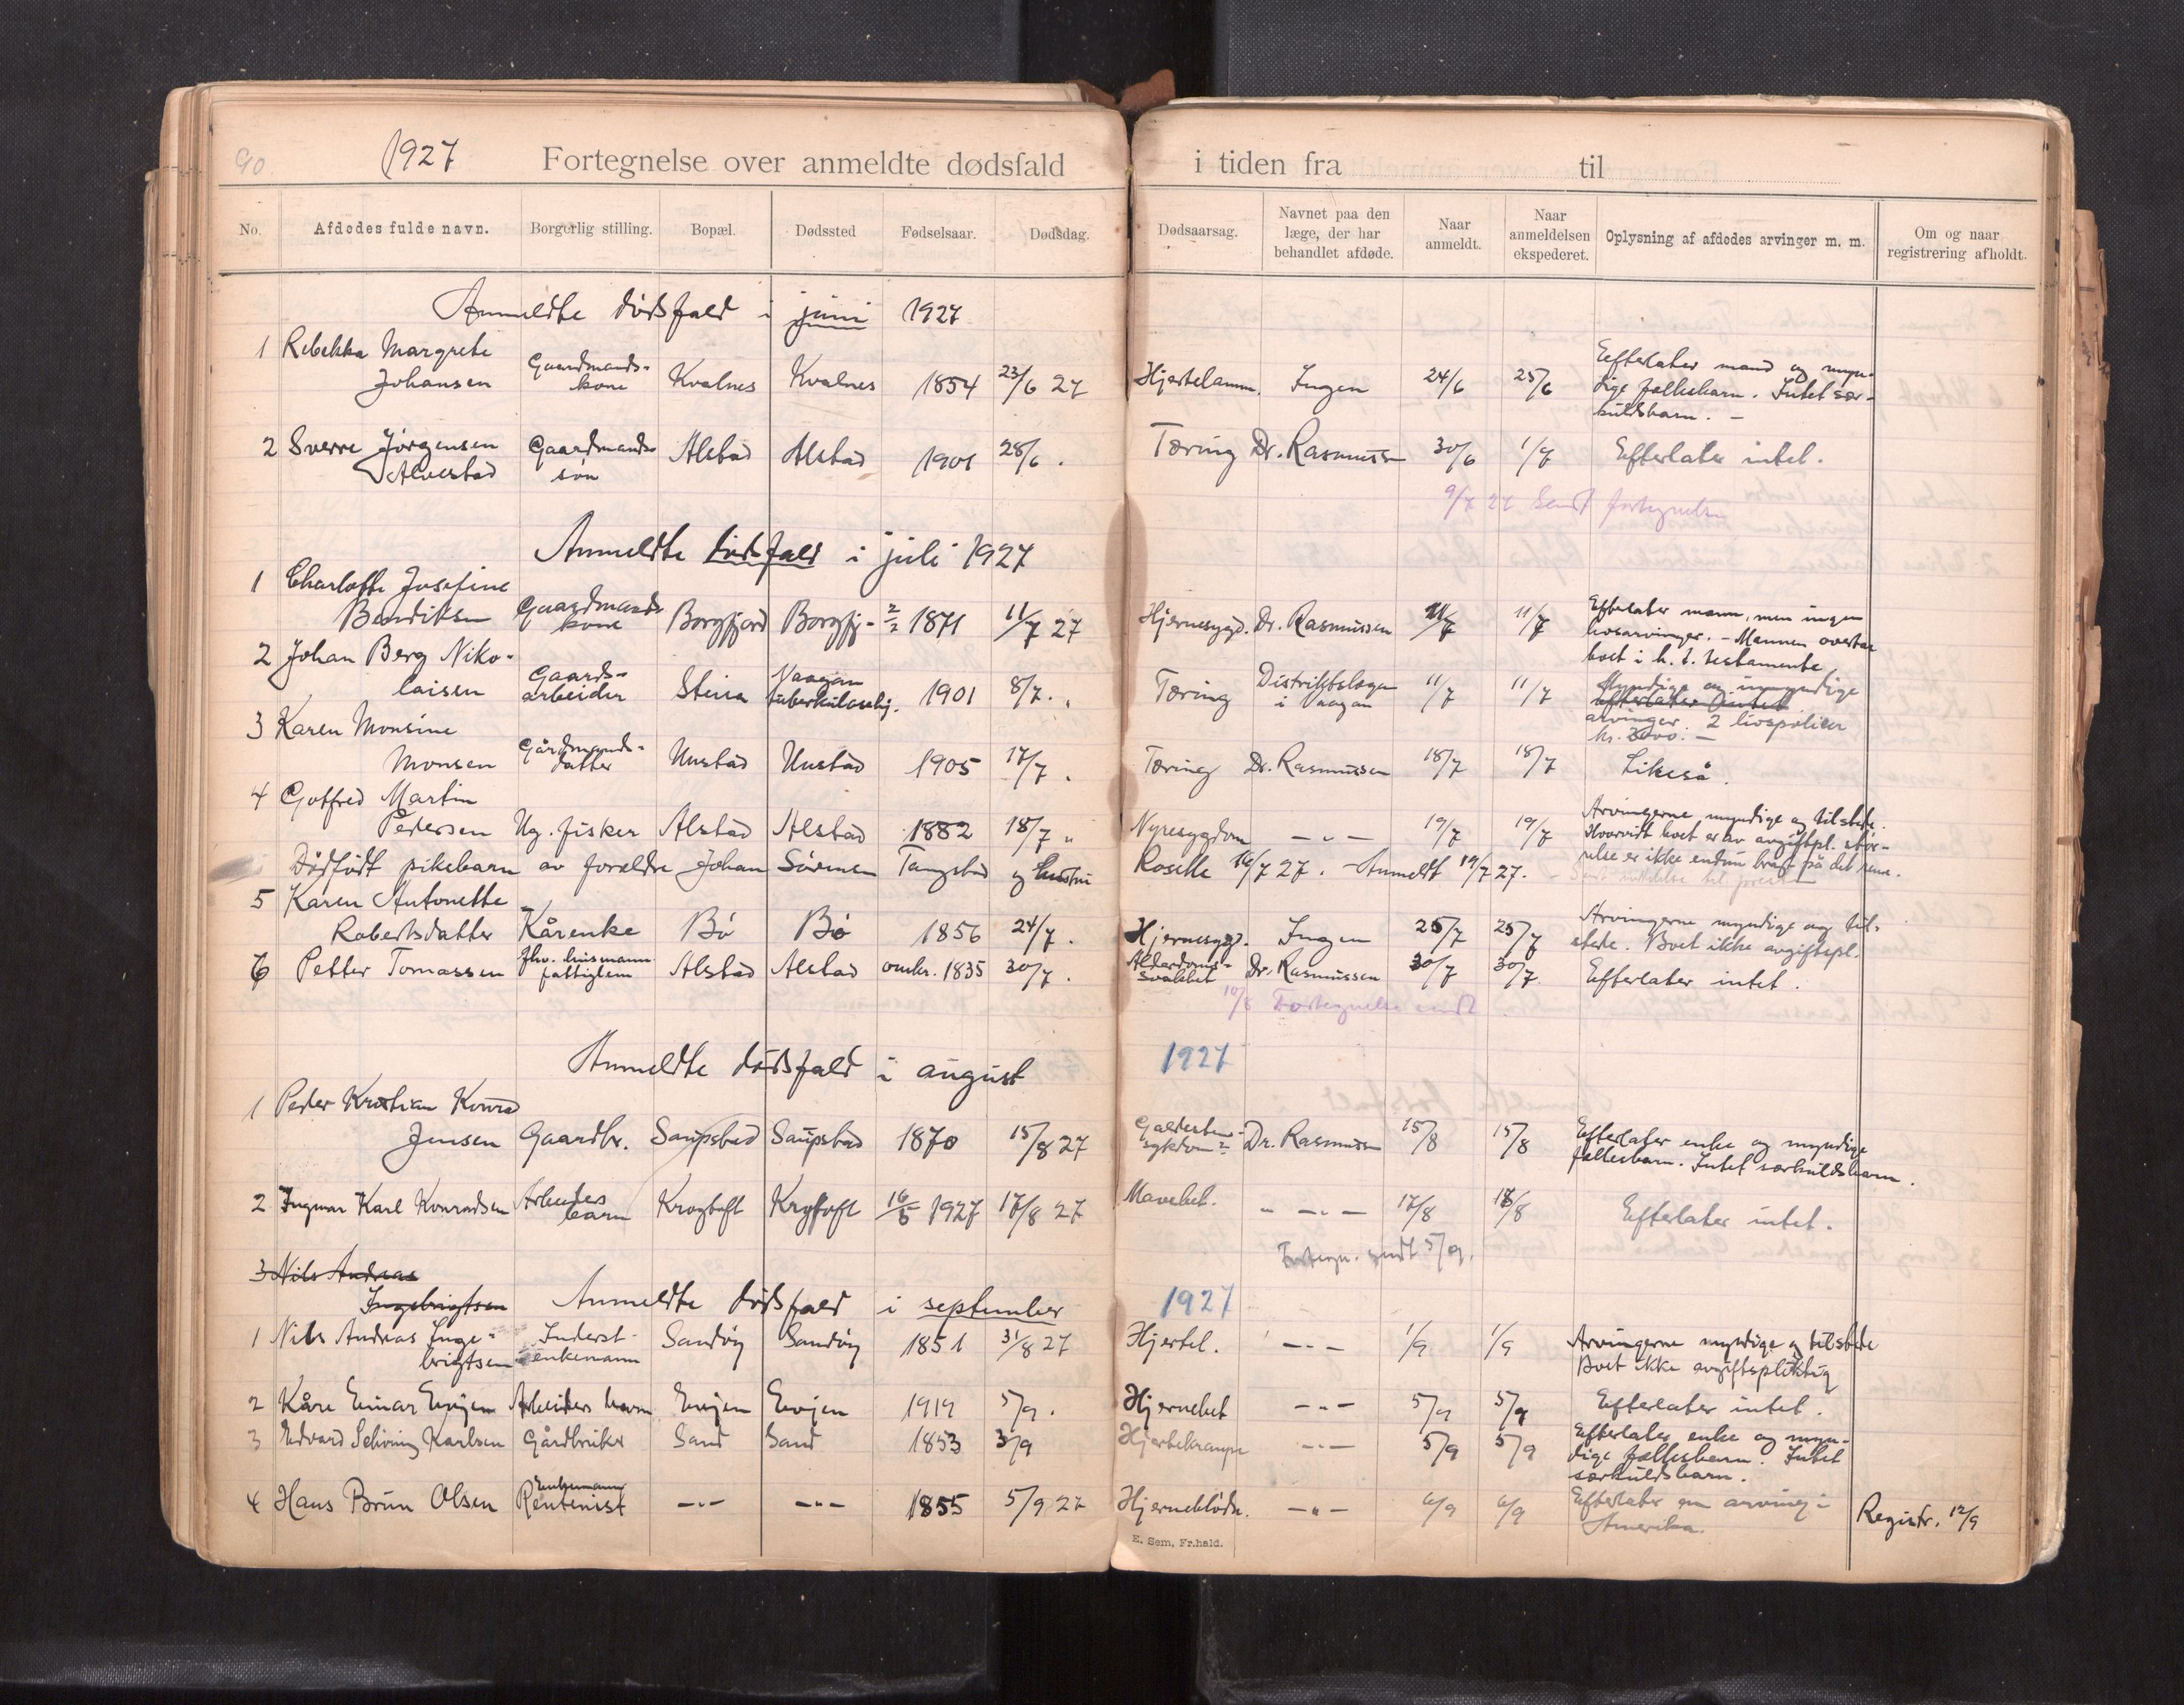 90
1927
Fortegnelse over anmeldte dødsfald
i tiden fra til
No. Afdødes fulde navn. Borgerlig stilling. Bopæl. Dødssted Fødselsaar. Dødsdag. Dødsaarsag. Navnet paa den læge, der har behandlet afdøde. Naar anmeldt. Naar anmeldelsen ekspederet. Oplysning af afdødes arvinger m. m. Om og naar registrering afholdt.
Anmeldte dödsfald i juni 1927
1 Rebekka Margrete
Johansen Gaardmands-kone Kvalnes Kvalnes 1854 23/6 27 Hjertelamm. Ingen 24/6 25/6 Efterlater mand og myn-
dige fællesbarn. Intet sær-
kuldsbarn. –
2 Sverre Jörgensen Gaardmands- Alstad Alstad 1901 28/6. Tæring Dr. Rasmussen 30/6 1/7 Efterlater intet.
Alvestad sön
9/7 27 Sendt fortegnelse
Anmeldte dödsfald i juli 1927
1 Charlotte Josefine
Bendiksen Gaardmands kone Borgfjord Borgfj- 2/2 1871 11/7 27 Hjernesygd. Dr. Rasmussen 11/7 11/7 Efterlater mann, men ingen
livsarvinger. – Mannen overtar
boet i h. t. testamente
2 Johan Berg Niko-
laisen Gaards-arbeider Steira Vaagan tuberkulosehj. 1901 8/7. " Tæring Distriktslægen i Vaagan 11/7 11/7 Myndige og umyndige
efterlater intet
arvinger. 2 livspoliser
kr. 2000. –
3 Karen Monsine
Monsen Gårdmands-datter Unstad Unstad 1905 17/7. Tæring Dr. Rasmussen 18/7 18/7 Likeså.
4 Gotfred Martin
Pedersen Ug. fisker Alstad Alstad 1882 18/7 " Nyresygdom – " – 19/7 19/7 Arvingerne myndige og tilstede.
Hvorvidt boet er av avgiftspl. stör-
relse er ikke endnu bragt på det rene.
Dödfödt pikebarn av forældre Johan Sörensen Tangstad og hustru Roselle 16/7 27. – Anmeldt 19/7 27.
5 Karen Antonette
Robertsdatter Kårenke Bö Bö 1856 24/7. Hjernesygd. Ingen 25/7 25/7 Arvingerne myndige og til-
stede. Boet ikke avgiftspl.
6 Petter Tomassen fhv. husmann fattiglem Alstad Alstad omkr. 1835 30/7. Alderdoms-svakhet Dr. Rasmussen 30/7 30/7 Efterlater intet.
10/8 Fortegnelse sendt
Anmeldte dödsfald i august 1927
1 Peder Kristian Konrad
Jensen Gaardbr. Saupstad Saupstad 1870 15/8 27 Galdesten-sykdom Dr. Rasmussen 15/8 15/8 Efterlater enke og myndige
fællesbarn. Intet særkuldsbarn.
2 Ingmar Karl Konradsen Arbeiders barn Krogtoft Krogtoft 16/5 1927 17/8 27 Mavebet. " – " – 17/8 18/8 Efterlater intet.
Fortegn. sendt 5/9.
3 Nils Andreas
Ingebrigtsen
Anmeldte dödsfald i september 1927
1 Nils Andreas Inge-
brigtsen Inderst-enkemann Sandöy Sandöy 1851 31/8 27 Hjertel. – " – 1/9 1/9 Arvingerne myndige og tilstede
Boet ikke avgiftspliktig
2 Kåre Einar Evjen Arbeiders barn Evjen Evjen 1919 5/9. Hjernebet – " – 5/9 5/9 Efterlater intet.
3 Edvard Karlsen Gårdbruker Sand Sand 1853 3/9 Hjertekrampe – " – 5/9 5/9 Efterlater enke og myn-
dige fællesbarn. Intet
særkuldsbarn.
4 Hans Brun Olsen Enkemann Rentenist – " – – " – 1855 5/9 27 Hjerneblödn. – " – 6/9 6/9 Efterlater en arving i
Amerika. Registr. 12/9
E. Sem, Fr.hald.